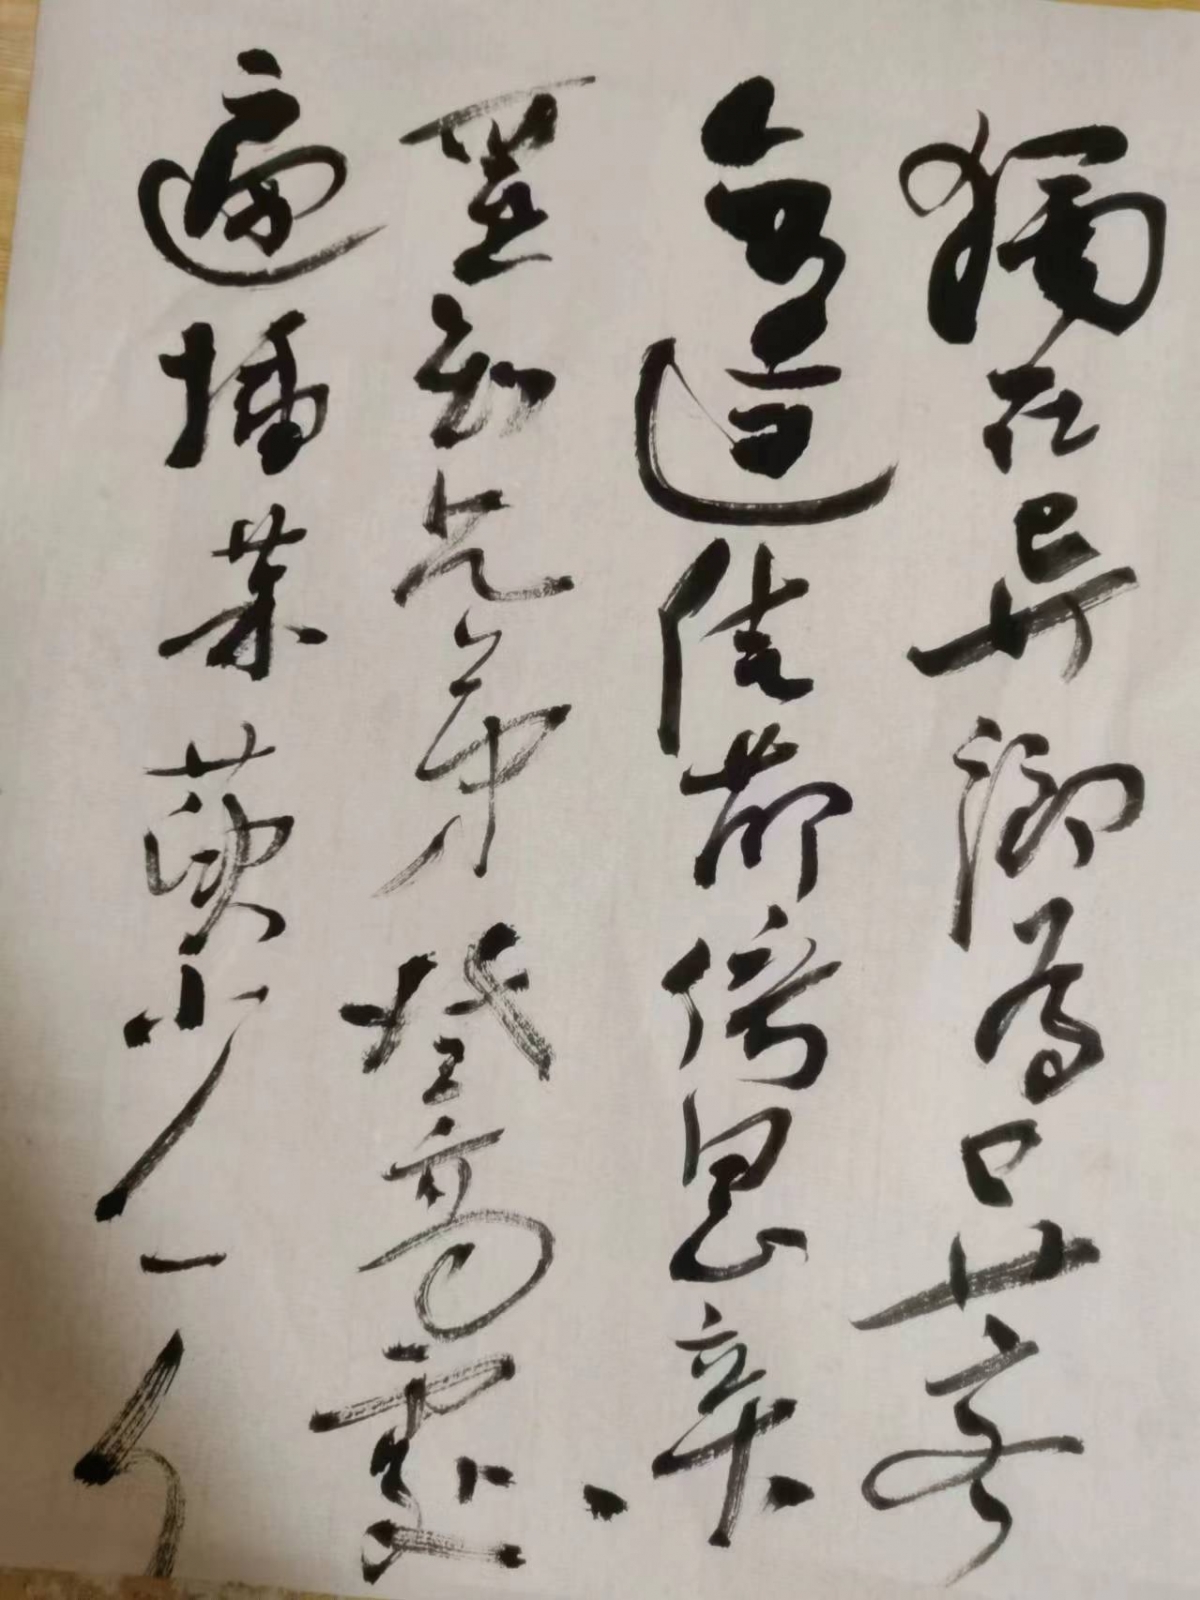 獨在异鄉為异客
每逢佳節倍思亲
遥知兄弟登高處
遍插茱萸少一人